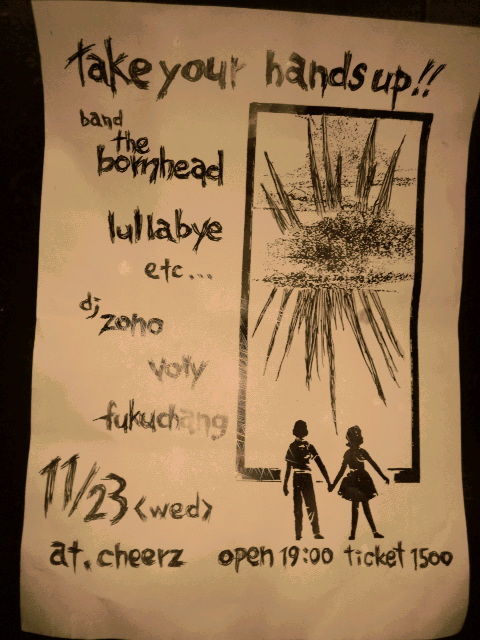 take your hands up!!
band
the
bornhead
lullabye
etc...
dj
zono
voly
fukuchang
11/23 <wed>
at. cheerz open 19:00 ticket 1500